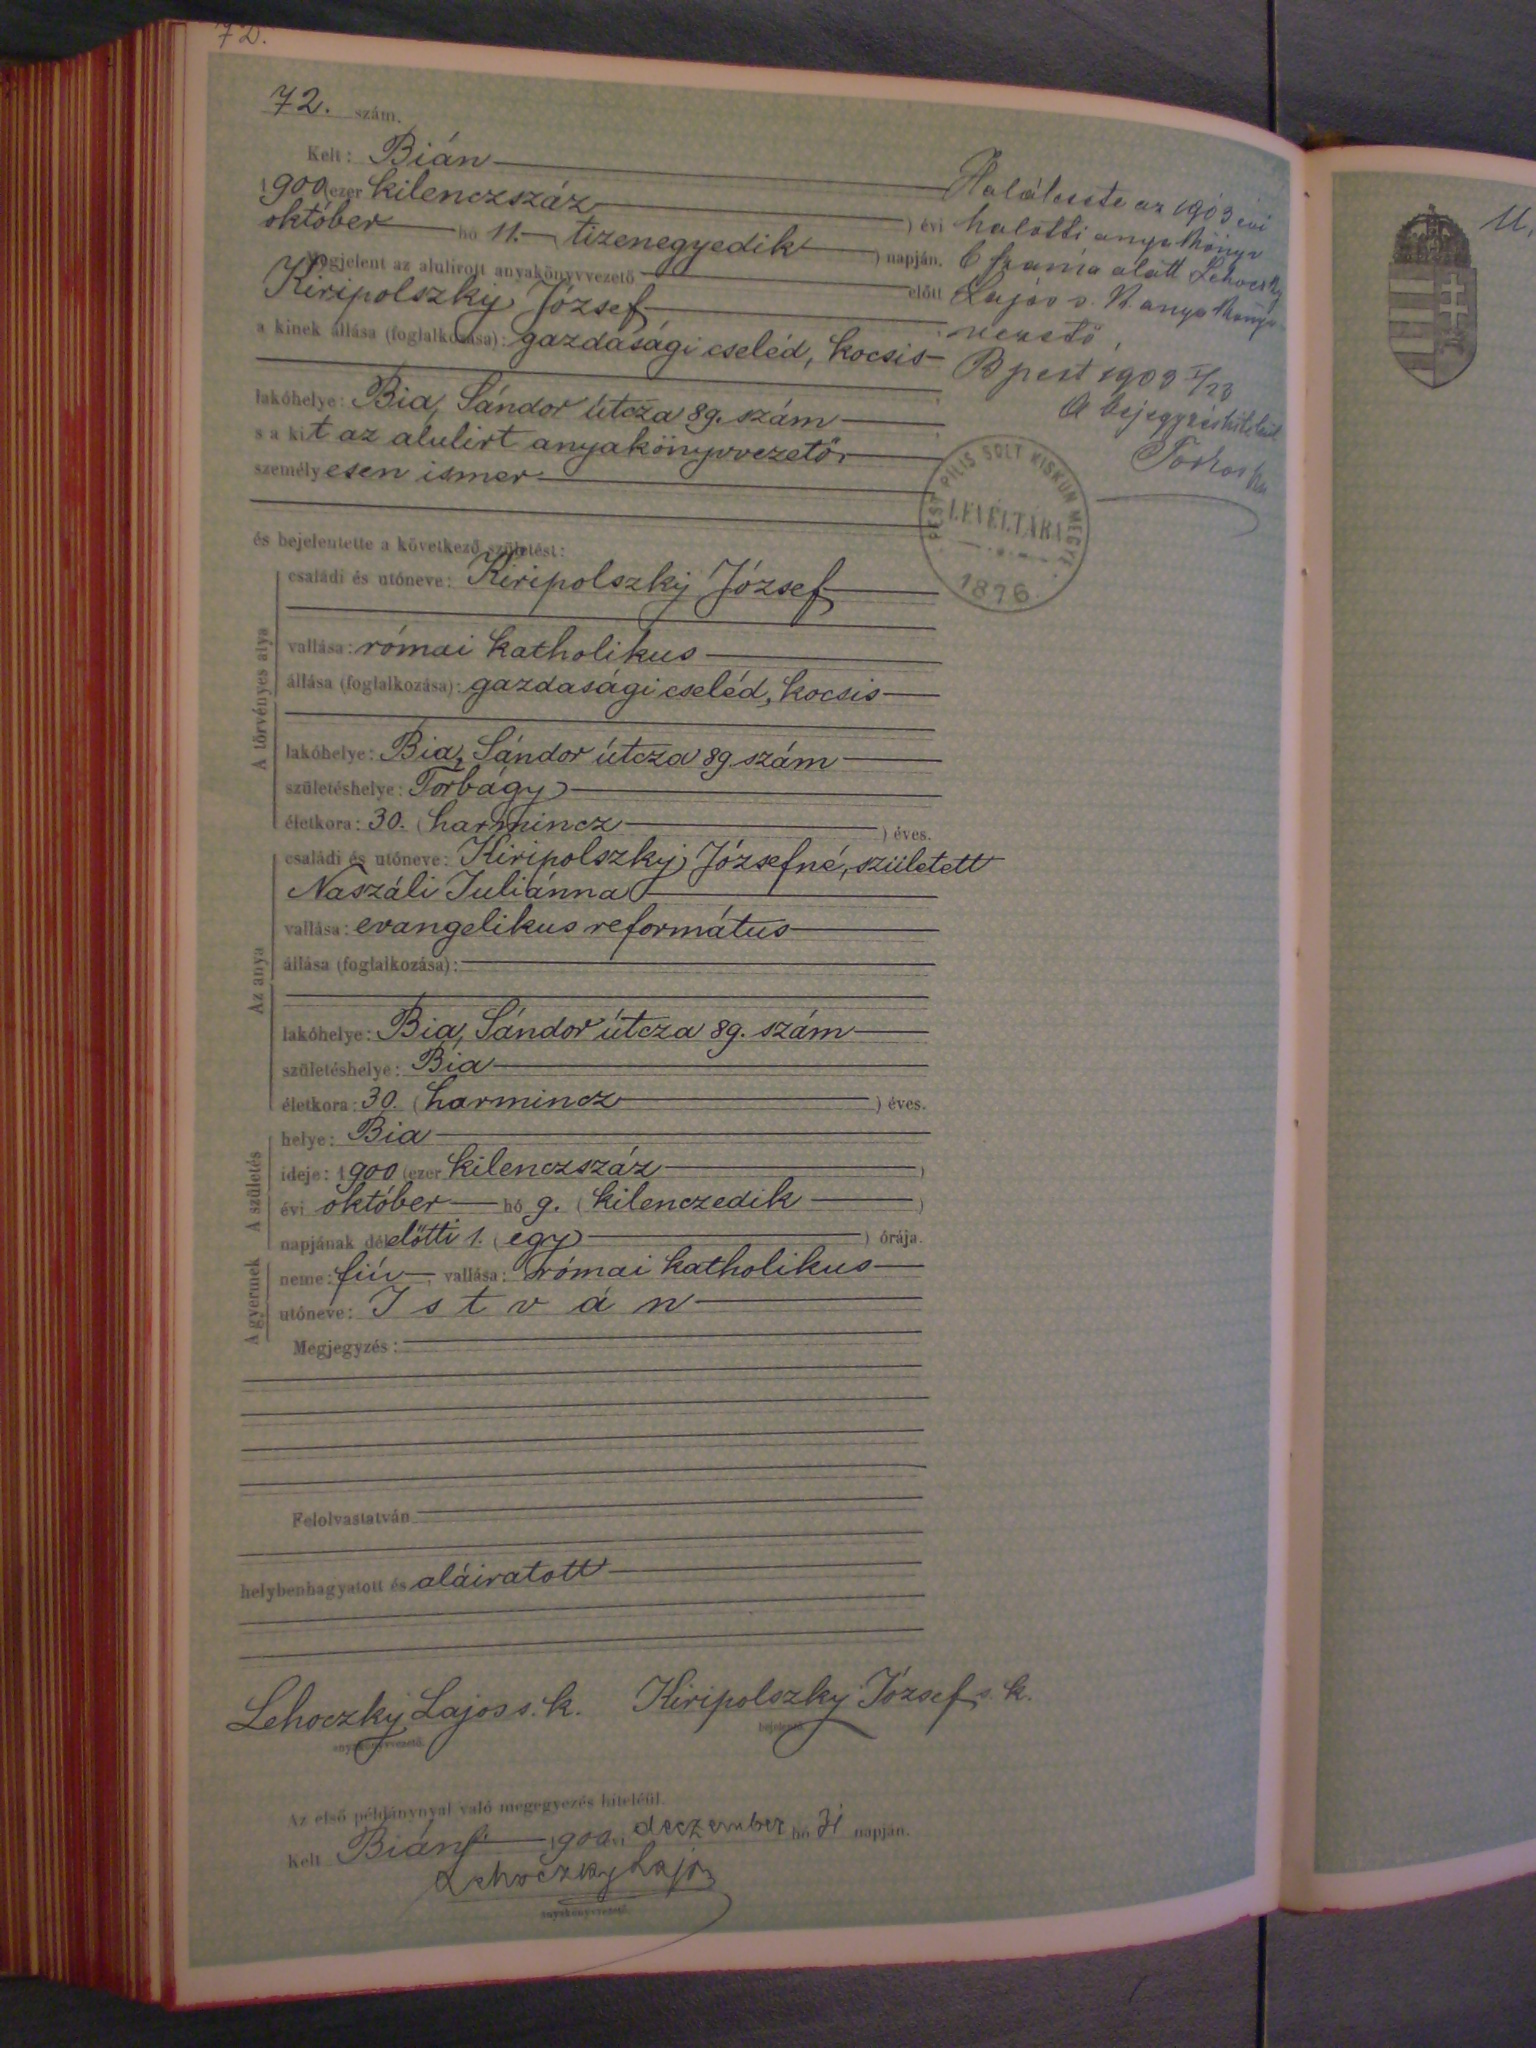 72.
72. szám.
Kelt: Bián
1900 (ezer kilenczszáz ) évi
október hó 11. ( tizenegyedik ) napján.
Megjelent az alulírott anyakönyvvezető előtt
Kiripolszky József
a kinek állása (foglalkozása): gazdasági cseléd, kocsis
lakóhelye: Bia, Sándor útcza 89. szám
s a kit az alulirt anyakönyvvezető
személyesen ismer
és bejelentette a következő születést:
A törvényes atya
családi és utóneve: Kiripolszky József
vallása: római katholikus
állása (foglalkozása): gazdasági cseléd, kocsis
lakóhelye: Bia, Sándor útcza 89 szám
születéshelye: Torbágy
életkora: 30. (harmincz ) éves.
Az anya
családi és utóneve: Kiripolszky Józsefné, született
Naszáli Juliánna
vallása: evangelikus református
állása (foglalkozása):
lakóhelye: Bia, Sándor útcza 89. szám
születéshelye: Bia
életkora: 30. (harmincz ) éves.
A születés
helye: Bia
ideje: 1900 (ezer kilenczszáz )
évi október hó 9. (kilenczedik )
napjának délelőtti 1. (egy ) órája.
A gyermek
neme: fiú vallása: római katholikus
utóneve: István
Megjegyzés:
Felolvastatván
helybenhagyatott és aláiratott
Lehoczky Lajos s. k. Kiripolszky József s. k.
anyakönyvvezető. bejelentő.
Az első példánynyal való megegyezés hiteléül
Kelt Bián 1900 évi deczember hó 31 napján.
Lehoczky Lajos
anyakönyvvezető.
Halálesete az 1903 évi
halotti anyakönyv
6 száma alatt Lehoczky
Lajos s. k. anyakönyv-
vezető,
Bpest 1903 I/23
A bejegyzés hiteléül
PEST PILIS SOLT KISKUN MEGYE
LEVÉLTÁRA
1876
11,